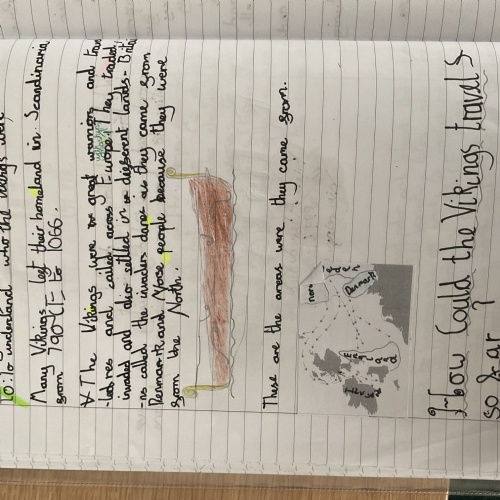 To: To understand who the vikings were
Many Vikings left their homeland in Scandinavia
from 790 CE to 1066.
The Vikings were great warriors and
and called across Europe. They traded,
invaded and also settled in different lands -
-ns called the invaders danes as they came from
Denmark and Norse people because they were
from the North.
These are the areas were they came from.
Denmark
England
How Could the Vikings travel
so far?